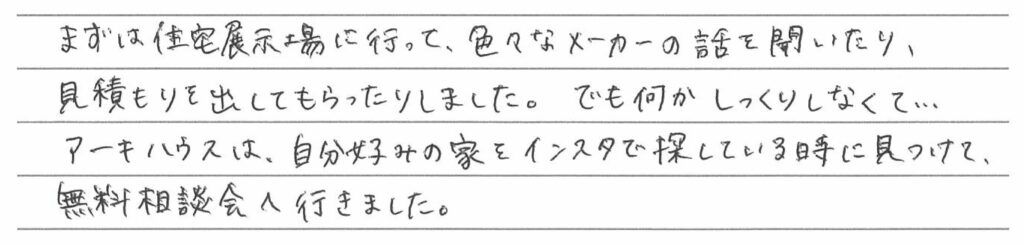 まずは住宅展示場に行って、色々なメーカーの話を聞いたり、
見積もりを出してもらったりしました。でも何かしっくりしなくて…
アーキハウスは、自分好みの家をインスタで探している時に見つけて、
無料相談会へ行きました。